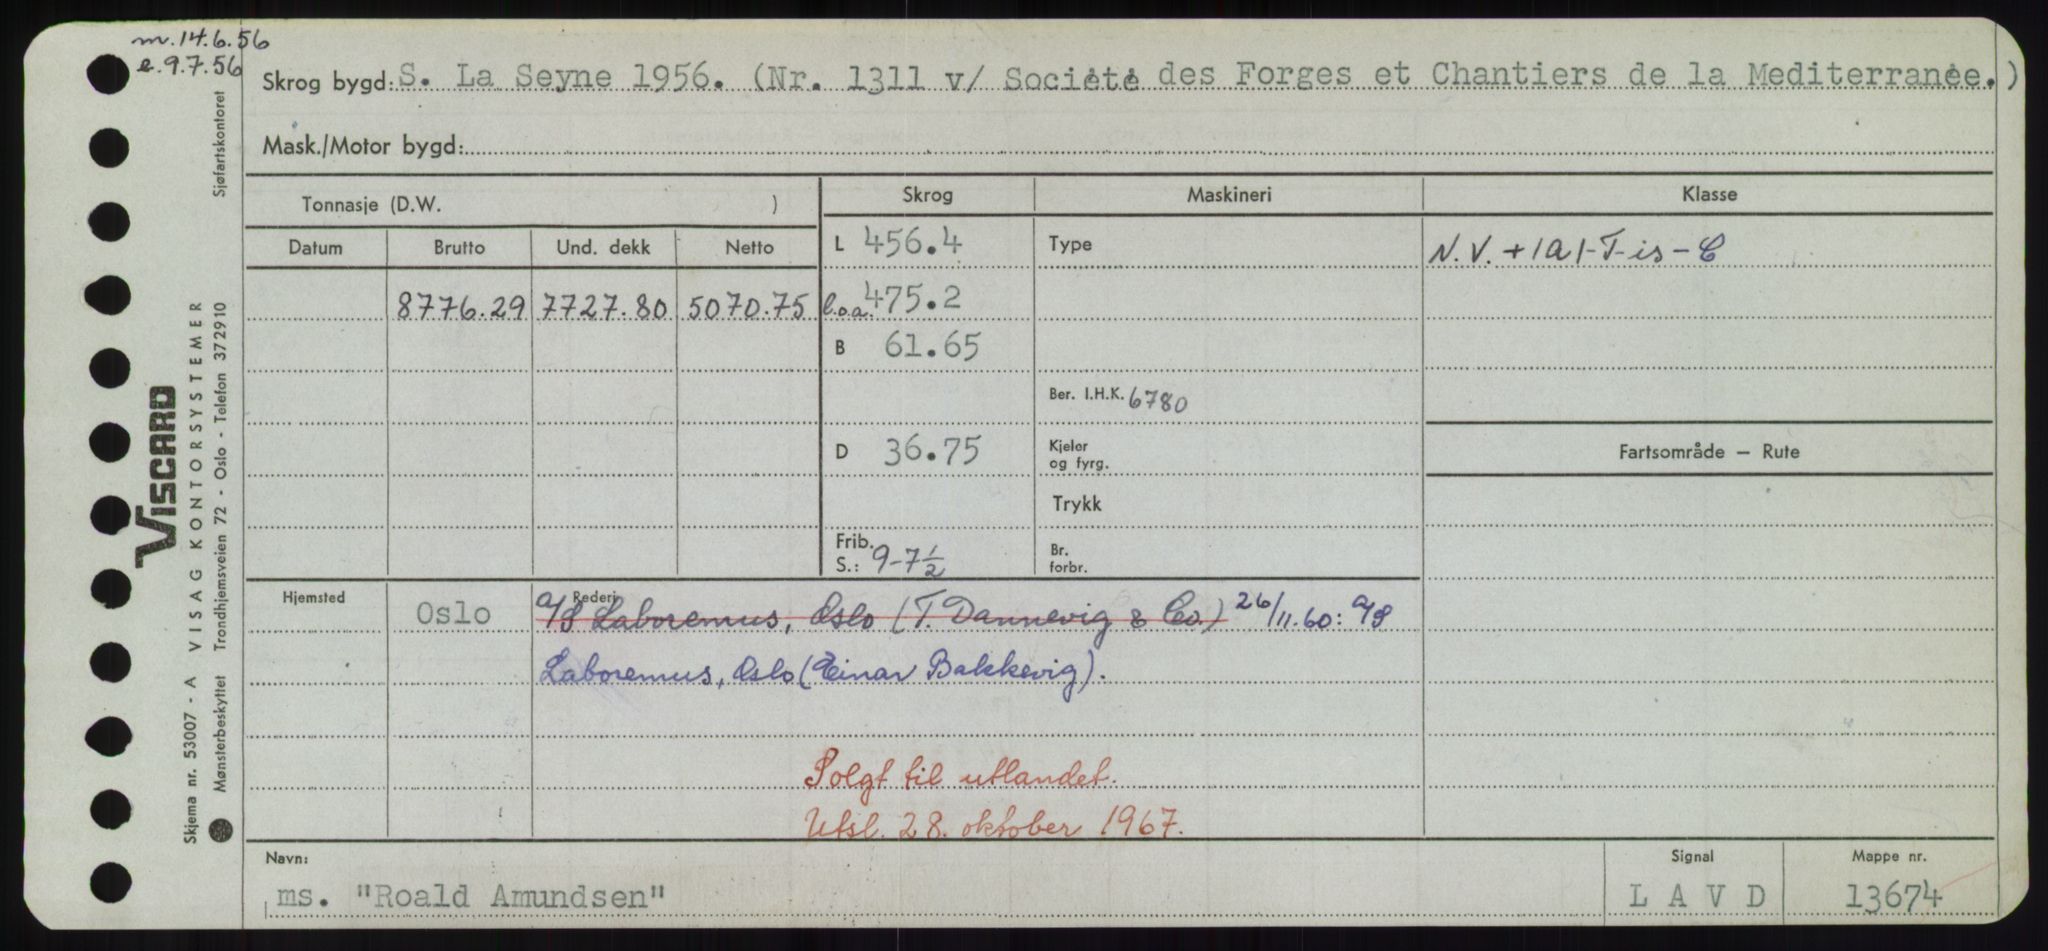 m. 14.6.56
e. 9.7.56
Skrog bygd: S. La Seyne 1956. (Nr. 1311 v/ Société des Forges et Chantiers de la Mediterranée.)
Mask./Motor bygd:
Tonnasje (D.W. )
Skrog
Maskineri
Klasse
Datum
Brutto
Und. dekk
Netto
L 456.4
Type
N.V. +1A1-T-is-C
8776.29 7727.80 5070.75
l.o.a. 475.2
B 61.65
Ber. I.H.K. 6780
D 36.75
Kjeler
og fyrg.
Fartsområde — Rute
Trykk
Frib.
S.: 9-7½
Br.
forbr.
Hjemsted
Oslo
Rederi
A/S Laboremus, Oslo (T. Dannevig & Co.) 26/11.60: A/S
Laboremus, Oslo (Einar Bakkevig).
Solgt til utlandet.
Utsl. 28. oktober 1967.
Navn:
ms. "Roald Amundsen"
Signal
L A V D
Mappe nr.
13674
VISCARD
Skjema nr. 53007 - A VISAG KONTORSYSTEMER
Mønsterbeskyttet Trondhjemsveien 72 - Oslo - Telefon 372910 Sjøfartskontoret